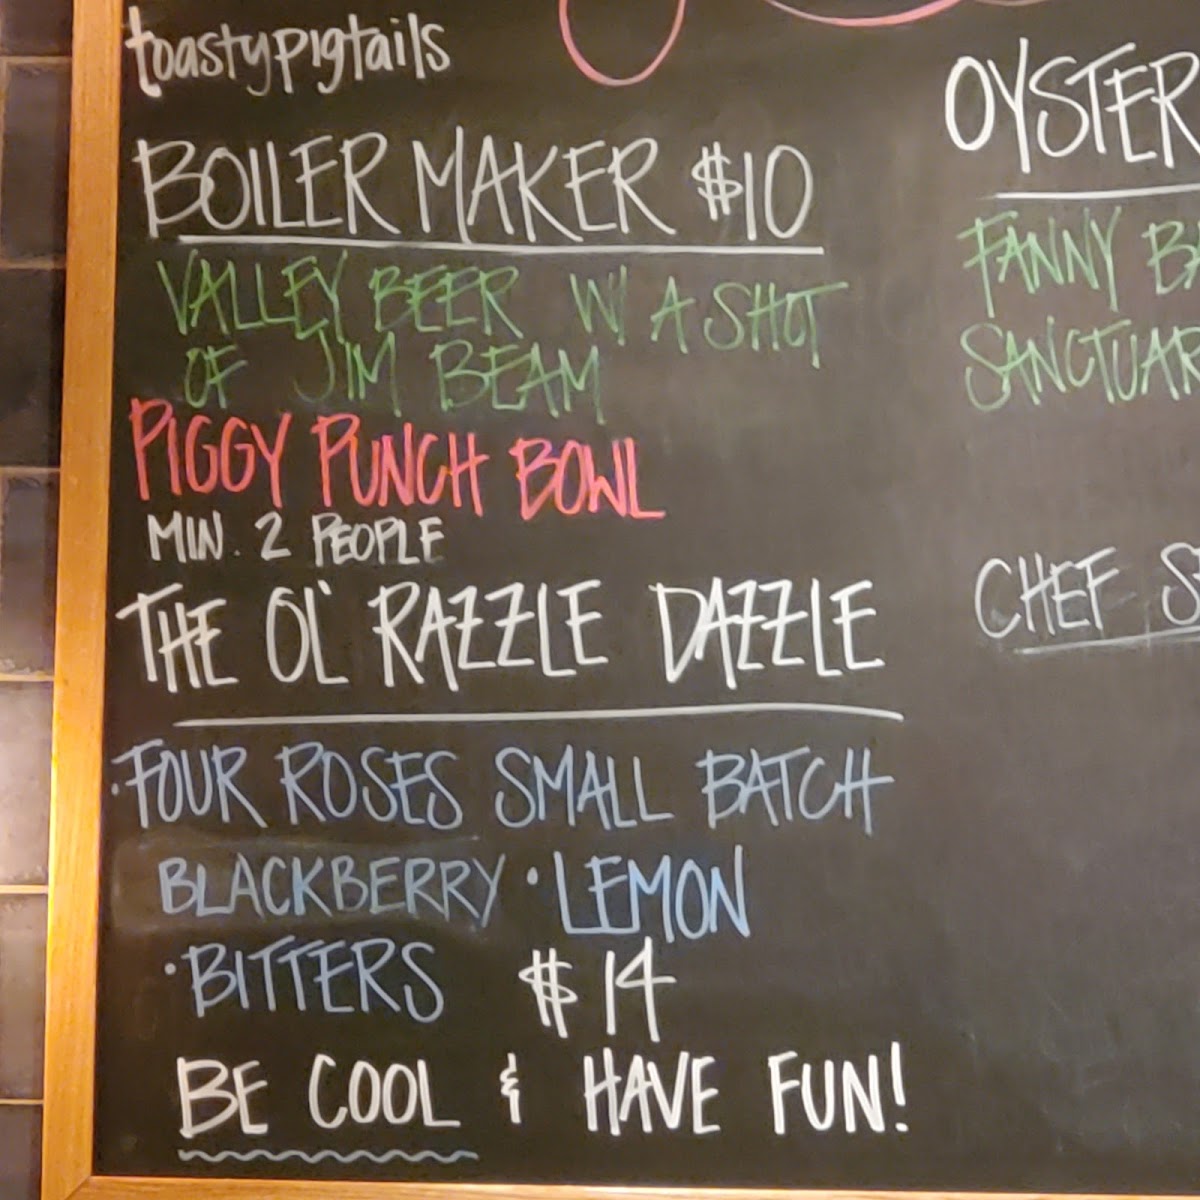 toastypigtails
BOILER MAKER $10
VALLEY BEER W/ A SHOT
OF JIM BEAM
PIGGY PUNCH BOWL
MIN. 2 PEOPLE
THE OL' RAZZLE DAZZLE
·FOUR ROSES SMALL BATCH
BLACKBERRY · LEMON
·BITTERS $14
BE COOL & HAVE FUN!
OYSTER
FANNY BA
SANCTUAR
CHEF S